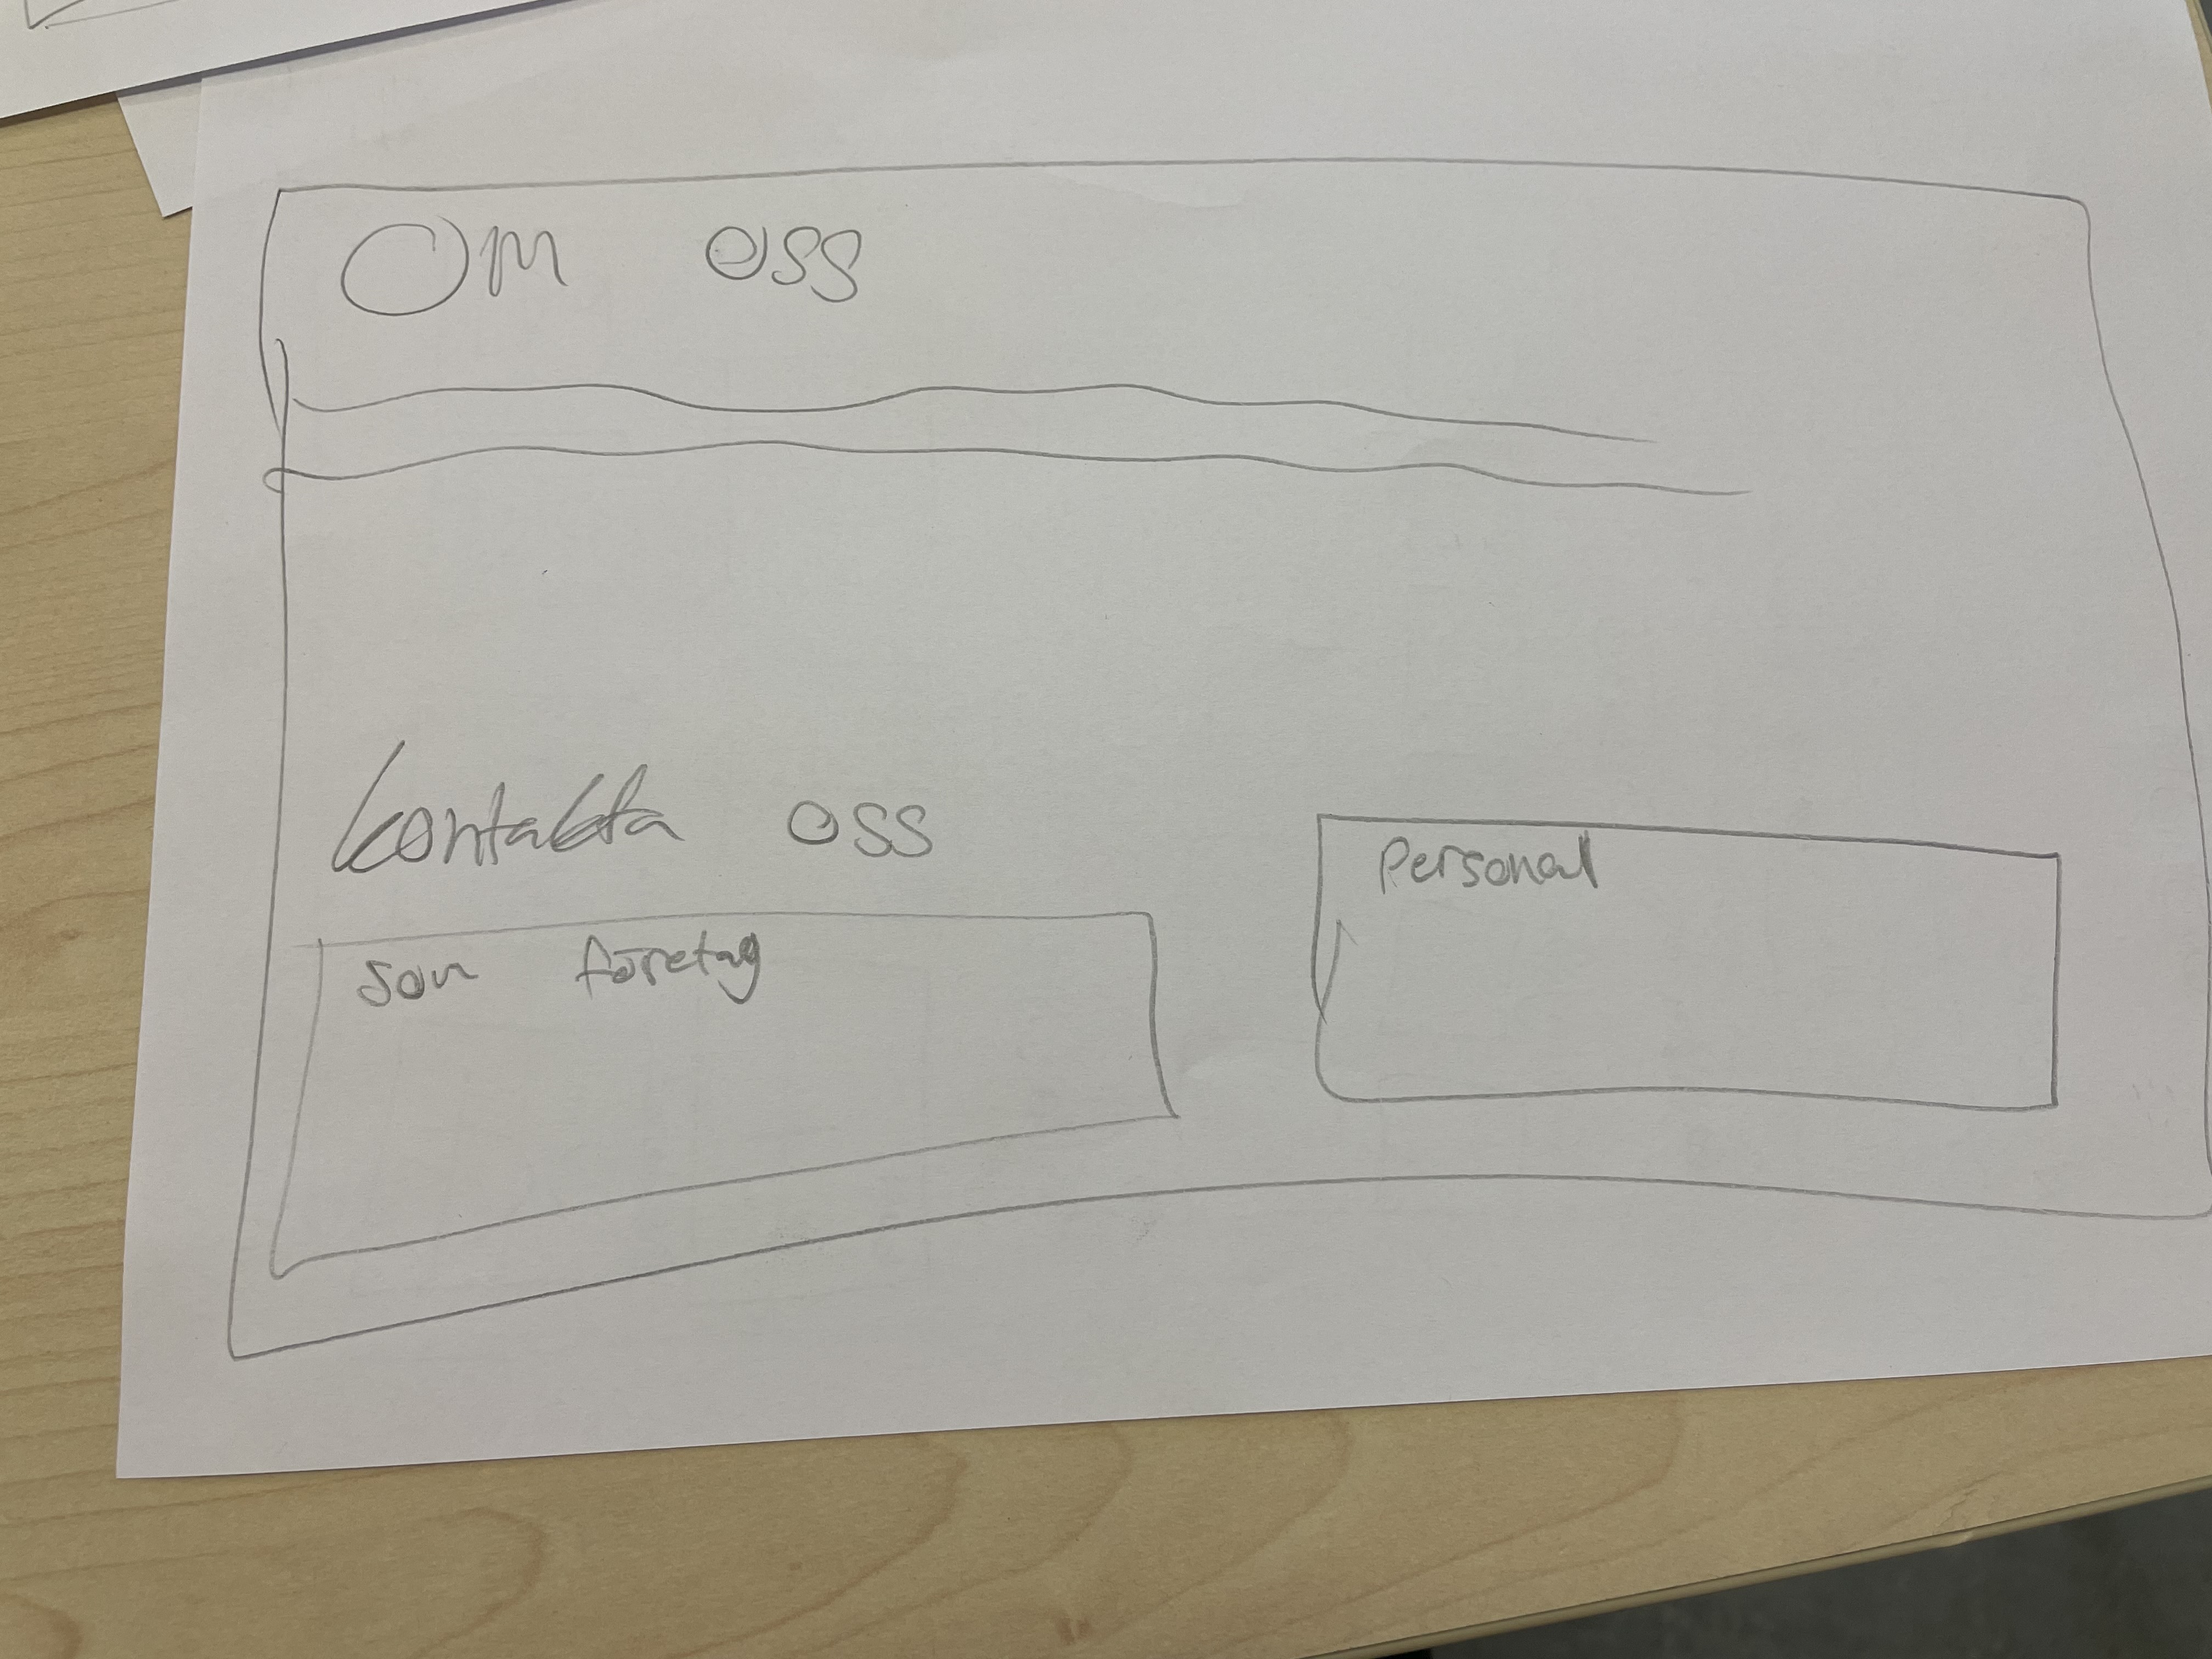 Om oss
Kontakta oss
Som företag
Personal